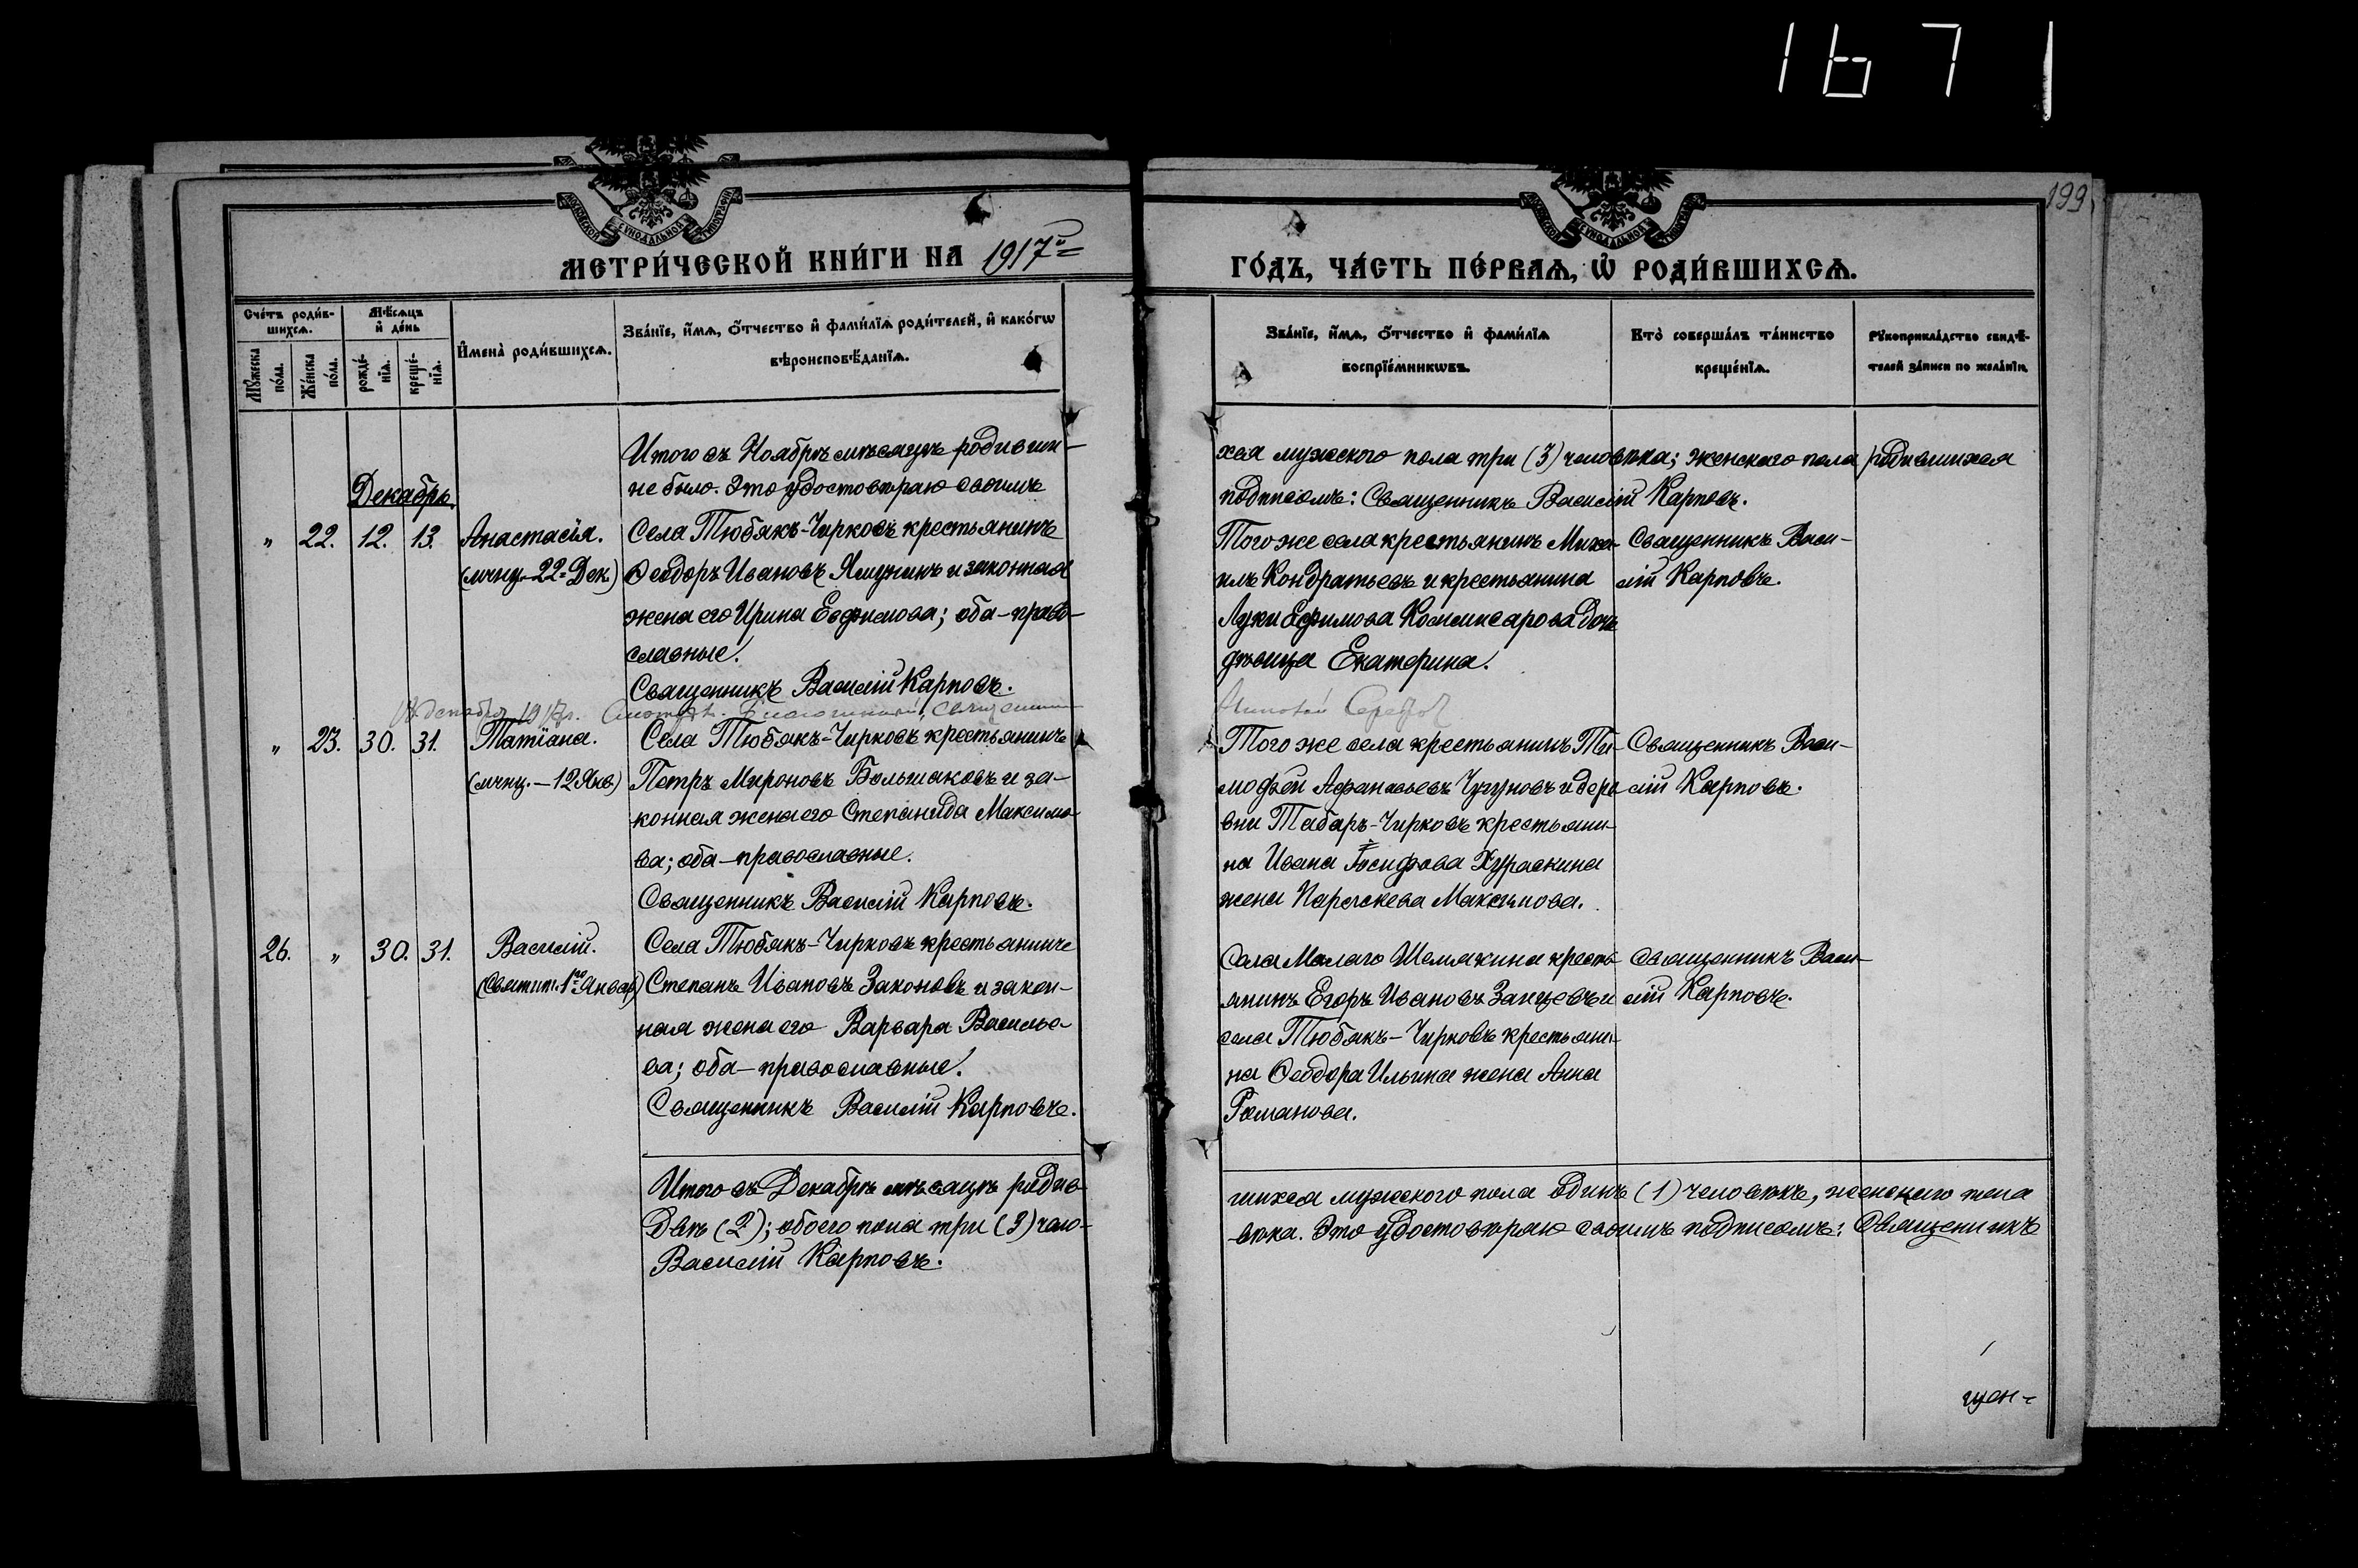 1671
199
МОСКОВСКОЙ СѴНОДАЛЬНОЙ ТИПОГРАФІИ
МОСКОВСКОЙ СѴНОДАЛЬНОЙ ТИПОГРАФІИ
МЕТРИ́ЧЕСКОЙ КНИ́ГИ НА 1917й
ГО́ДЪ, ЧА́СТЬ ПЕ́РВАѦ, Ѡ҆ РОДИ́ВШИХСѦ.
Сче́тъ роди́в-
шихсѧ.
Мꙋ́жеска
по́ла.
Же́нска
по́ла.
Мѣ́сѧцъ
и҆ де́нь
рожде́-
нїѧ.
креще́-
нїѧ.
И҆мена̀ роди́вшихсѧ.
Зва́нїе, и҆́мѧ, ѻ҆́тчество и҆ фами́лїѧ роди́телей, и҆ како́гѡ
вѣроисповѣ́данїѧ.
Зва́нїе, и҆́мѧ, ѻ҆́тчество и҆ фами́лїѧ
воспрїе́мникѡвъ.
Кто̀ соверша́лъ та́инство
креще́нїѧ.
Рꙋкоприкла́дство свидѣ́-
телей за́писи по жела́нїю.
Итого въ Ноябрѣ мѣсяцѣ родивши-
не было. Это удостовѣряю своимъ
хся мужского пола три (3) человѣка; женскаго пола родившихся
подписомъ: Священникъ Василій Карповъ.
Декабрь.
" 22. 12. 13. Анастасія.
(мчнц. 22= Дек.)
Села Тюбякъ-Чирковъ крестьянинъ
Ѳеодоръ Ивановъ Ямщикинъ и законная
жена его Ирина Евфимова; оба - право-
славные.
Священникъ Василій Карповъ.
Того же села крестьянинъ Миха-
илъ Кондратьевъ и крестьянина
Луки Ефимова Коммисарова дочь
дѣвица Екатерина.
Священникъ Васи-
лій Карповъ.
декабря 1917 г. Благочинный, Священникъ
" 23. 30. 31. Татіана.
(мчнц. - 12 Янв.)
Села Тюбякъ-Чирковъ крестьянинъ
Петръ Мироновъ Большаковъ и за-
конная жена его Степанида Максимо-
ва; оба - православные.
Священникъ Василій Карповъ.
Того же села крестьянинъ Ти-
мофей Афанасьевъ Чугуновъ и дере
вни Табаръ-Чирковъ крестьяни-
на Ивана Іосифова Хураскина
жена Параскева Максимова.
Священникъ Васи-
лій Карповъ.
26. " 30. 31. Василій.
(Святит. 1го Января)
Села Тюбякъ-Чирковъ крестьянинъ
Степанъ Ивановъ Законовъ и закон-
ная жена его Варвара Василье-
ва; оба - православные.
Священникъ Василій Карповъ.
Села Малаго Шемякина кресть-
янинъ Егоръ Ивановъ Зайцевъ и
села Тюбякъ-Чирковъ крестьяни-
на Ѳеодора Ильина жена Анна
Романова.
Священникъ Васи-
лій Карповъ.
Итого въ Декабрѣ мѣсяцѣ родив
двѣ (2); обоего пола три (3) чело-
Василій Карповъ.
шихся мужского пола одинъ (1) человѣкъ, женскаго пола
вѣка. Это удостовѣряю своимъ подписомъ: Священникъ
щен-